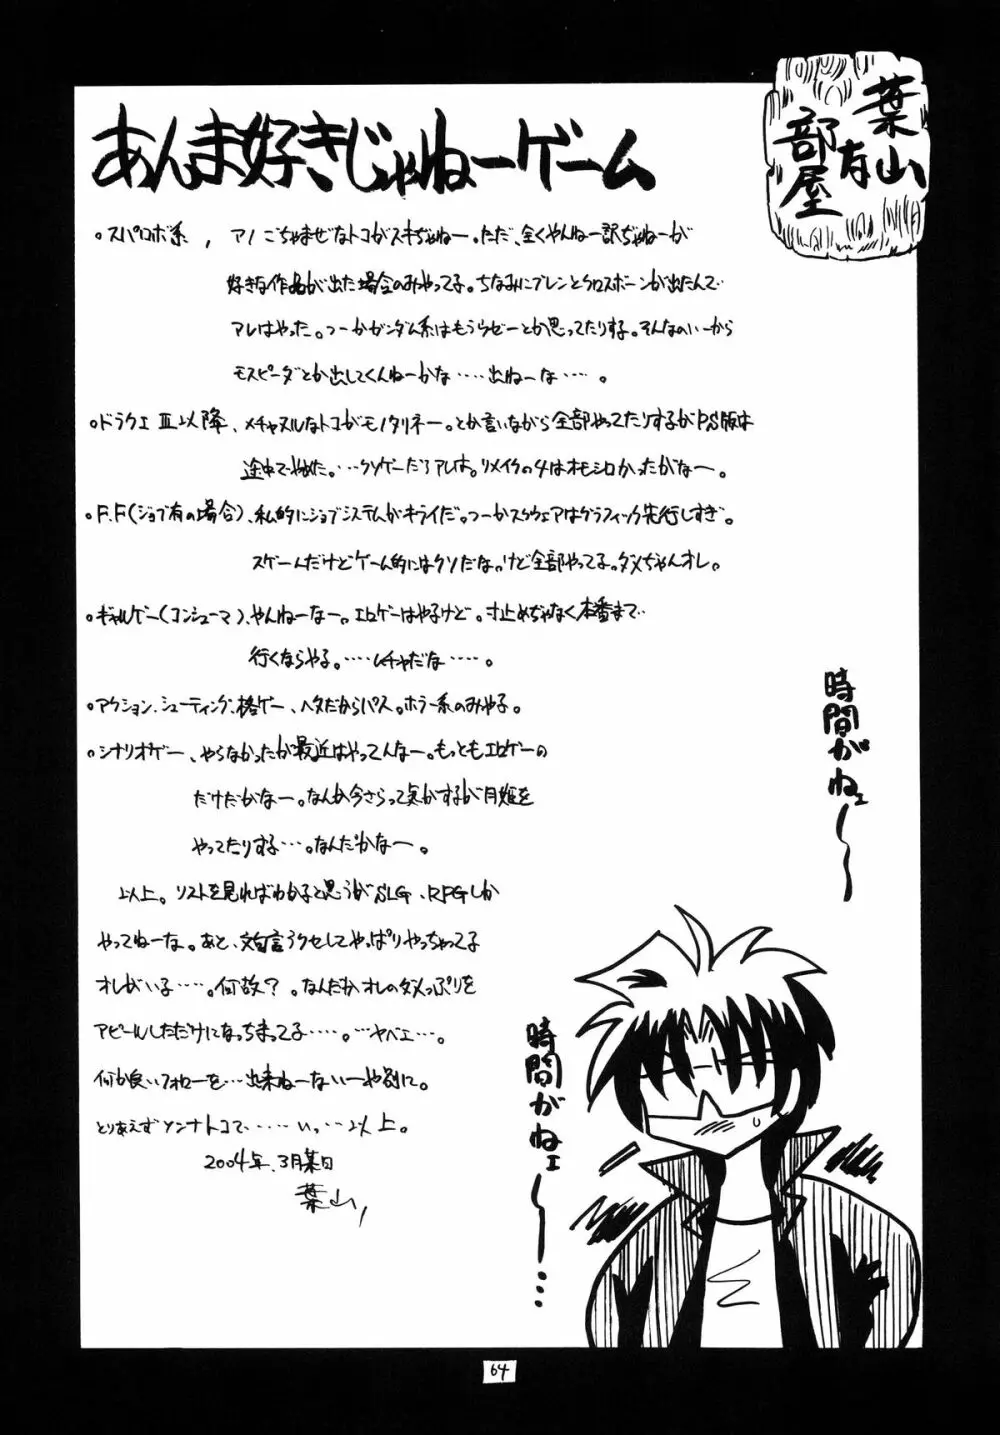 葉山
有
部屋
あんま好きじゃねーゲーム
。スパロボ系， アノごちゃまぜなトコがスキぢゃねー。ただ、全くやんねー訳ぢゃねーが
好きな作品が出た場合のみやってる。ちなみにブレンとクロスボーンが出たんで…
アレはやった。つーかガンダム系はもうウゼーとか思ってたりする。そんなのいーから
モスピーダとか出してくんねーかな……出ねーな……。
。ドラクエ Ⅲ以降、メチャヌルなトコがモノタリネー。とか言いながら全部やってたりするがPS版は
途中でやめた。…クソゲーだろアレは。リメイクの4はオモシロかったがなー。
。F.F(ジョブ有の場合)、私的にジョブシステムがキライだ。つーかスクウェアはグラフィック先行しすぎ。
スゲームだけどゲーム的にはクソだな。けど全部やってる。ダメちゃんオレ。
。ギャルゲー(コンシューマ)、やんねーなー。エロゲーはやるけど。寸止めぢゃなく本番まで…
行くならやる。……レチャだな……。
。アクション、シューティング、格ゲー、ヘタだからパス。ホラー系のみやる。
。シナリオゲー、やらなかったが最近はやってんなー。もっともエロゲーの
だけだがなー。なんか今さらって気がするが月姫を
やってたりする…。なんだかなー。
以上。リストを見ればわかると思うがSLG、RPGしか
やってねーな。あと、文句言うクセしてやっぱりやっちゃってる
オレがいる…。何故？。なんだかオレのダメっぷりを
アピールしただけになっちまってる……。…ヤベェ…。
何か良いフォローを…出来ねーないーや別に。
とりあえずソンナトコで……いっ…以上。
2004年、3月某日
葉山，
時間がねェ〜〜
時間がねェ〜〜…
64